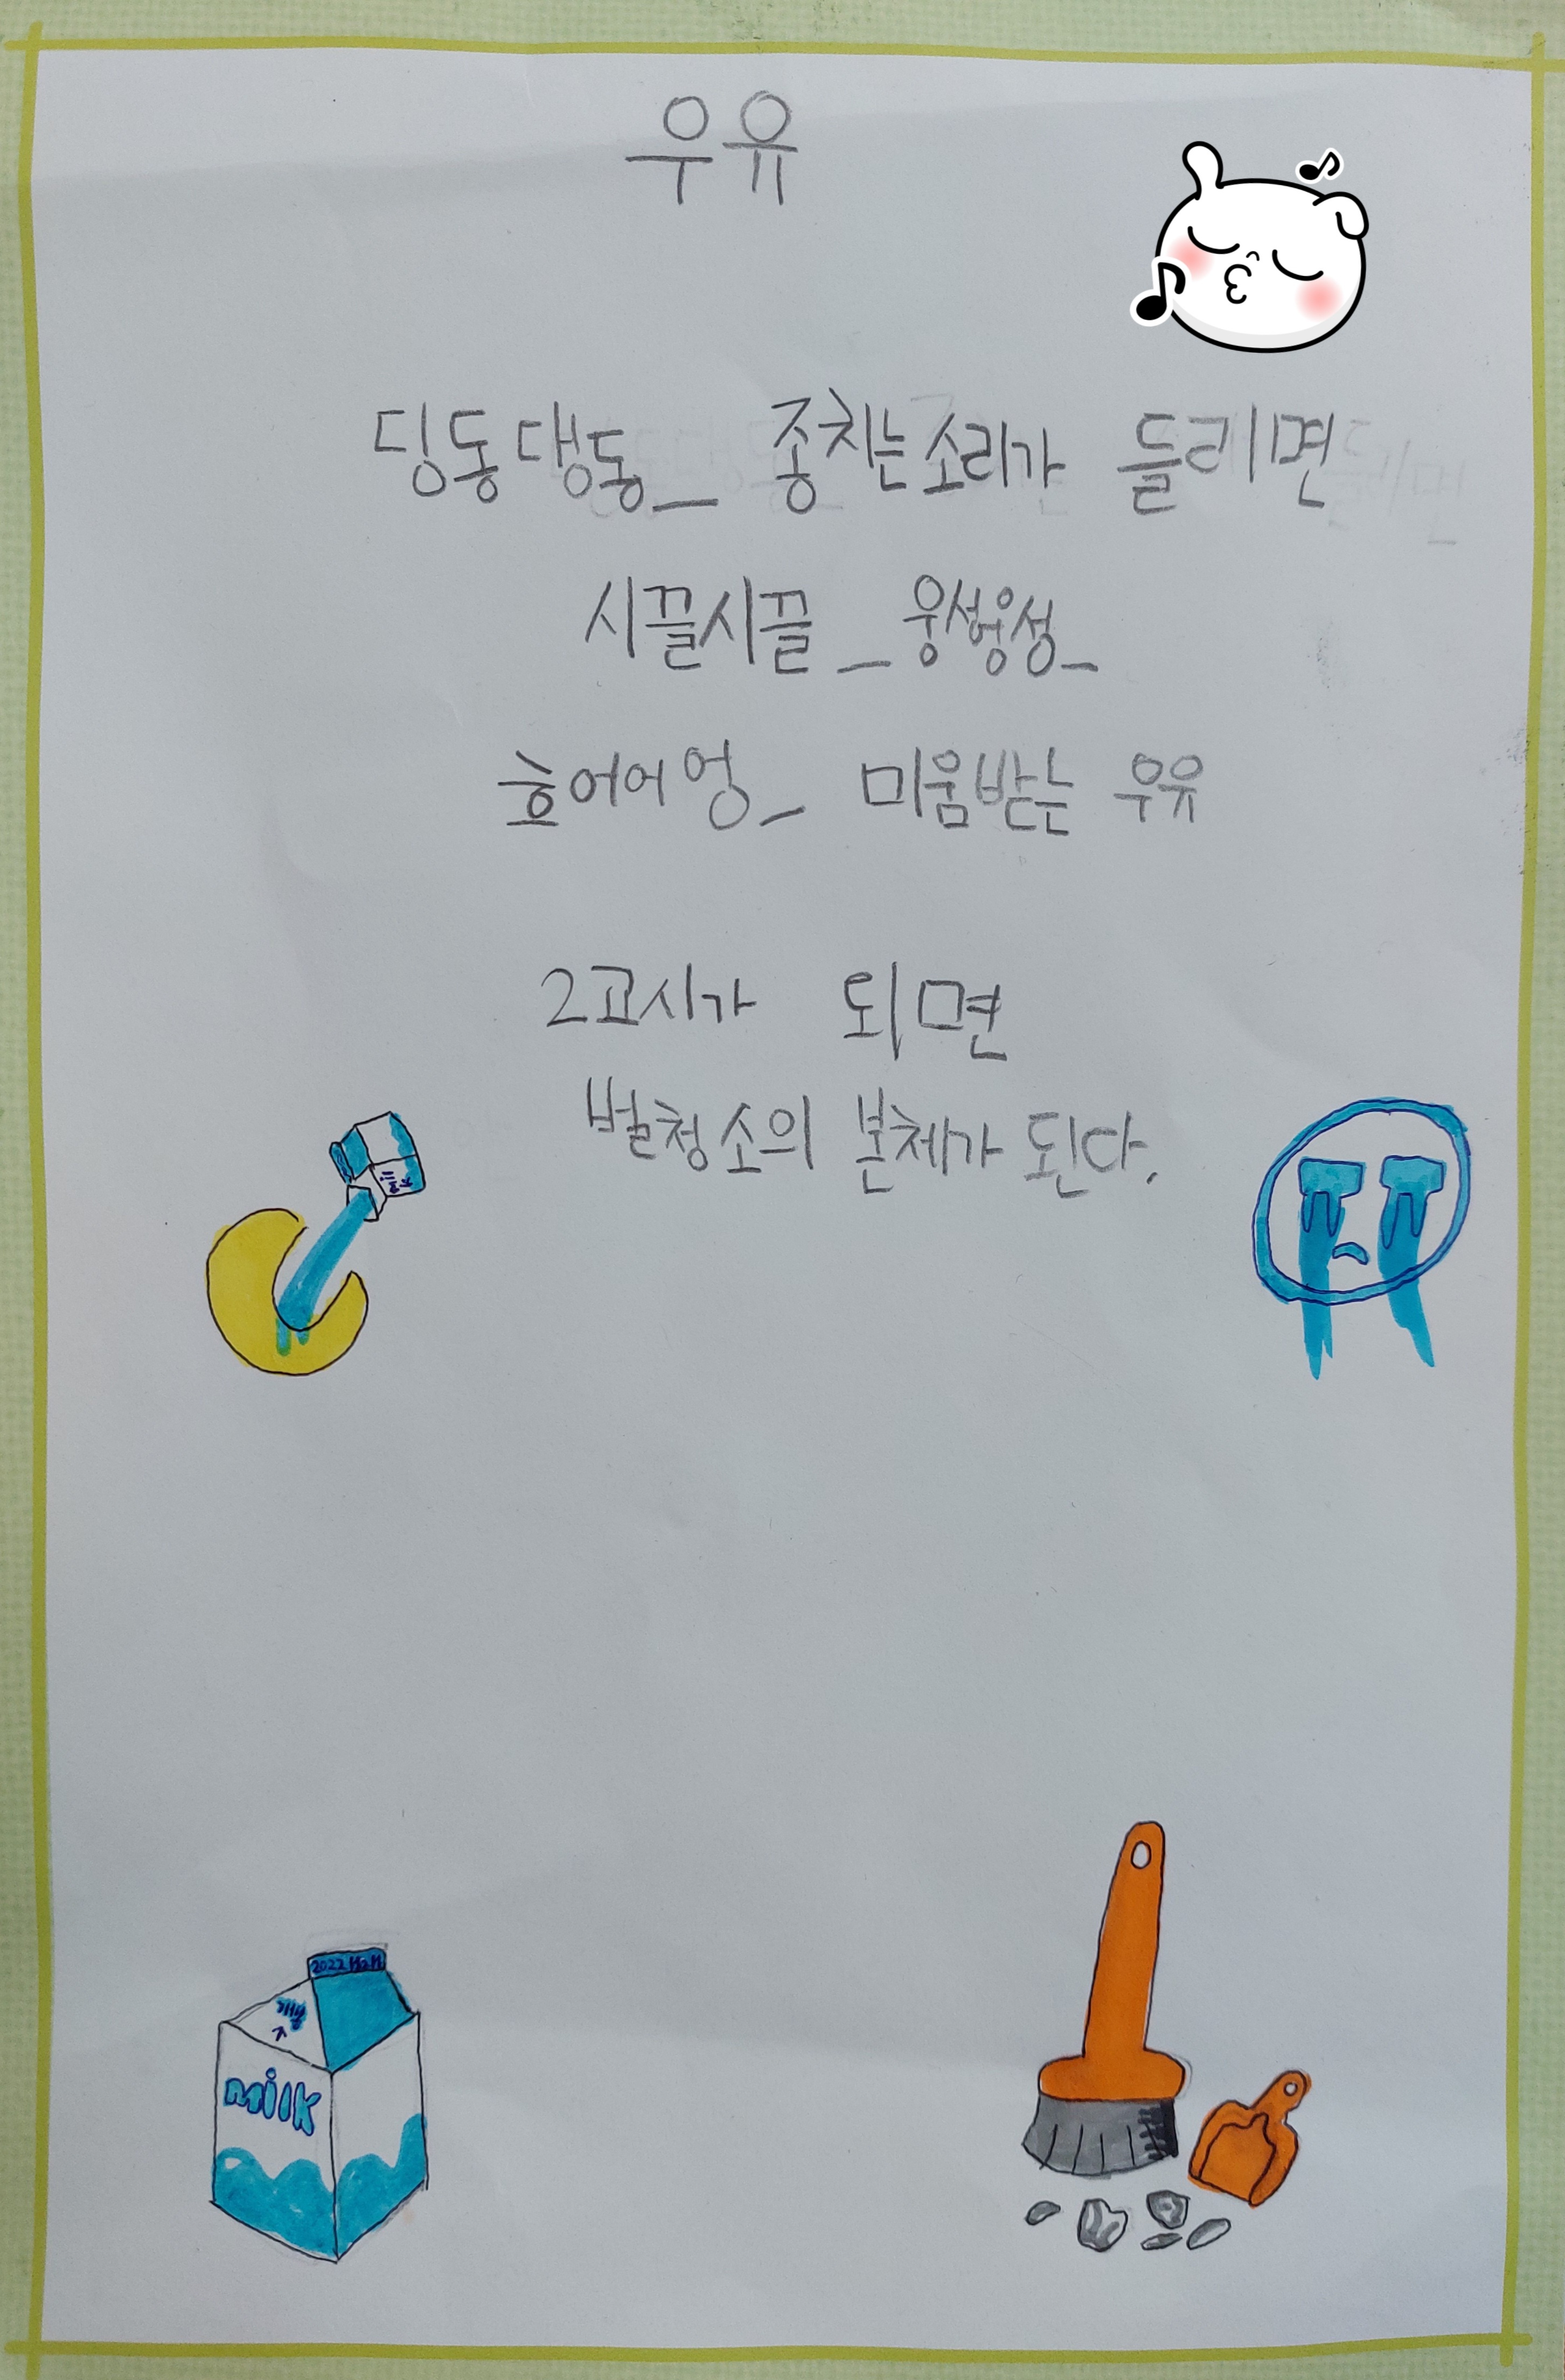 우유
딩동댕동_ 종치는 소리가 들리면
시끌시끌_웅성웅성_
흐어어엉_ 미움받는 우유
2교시가 되면
벌청소의 본체가 된다.
milk